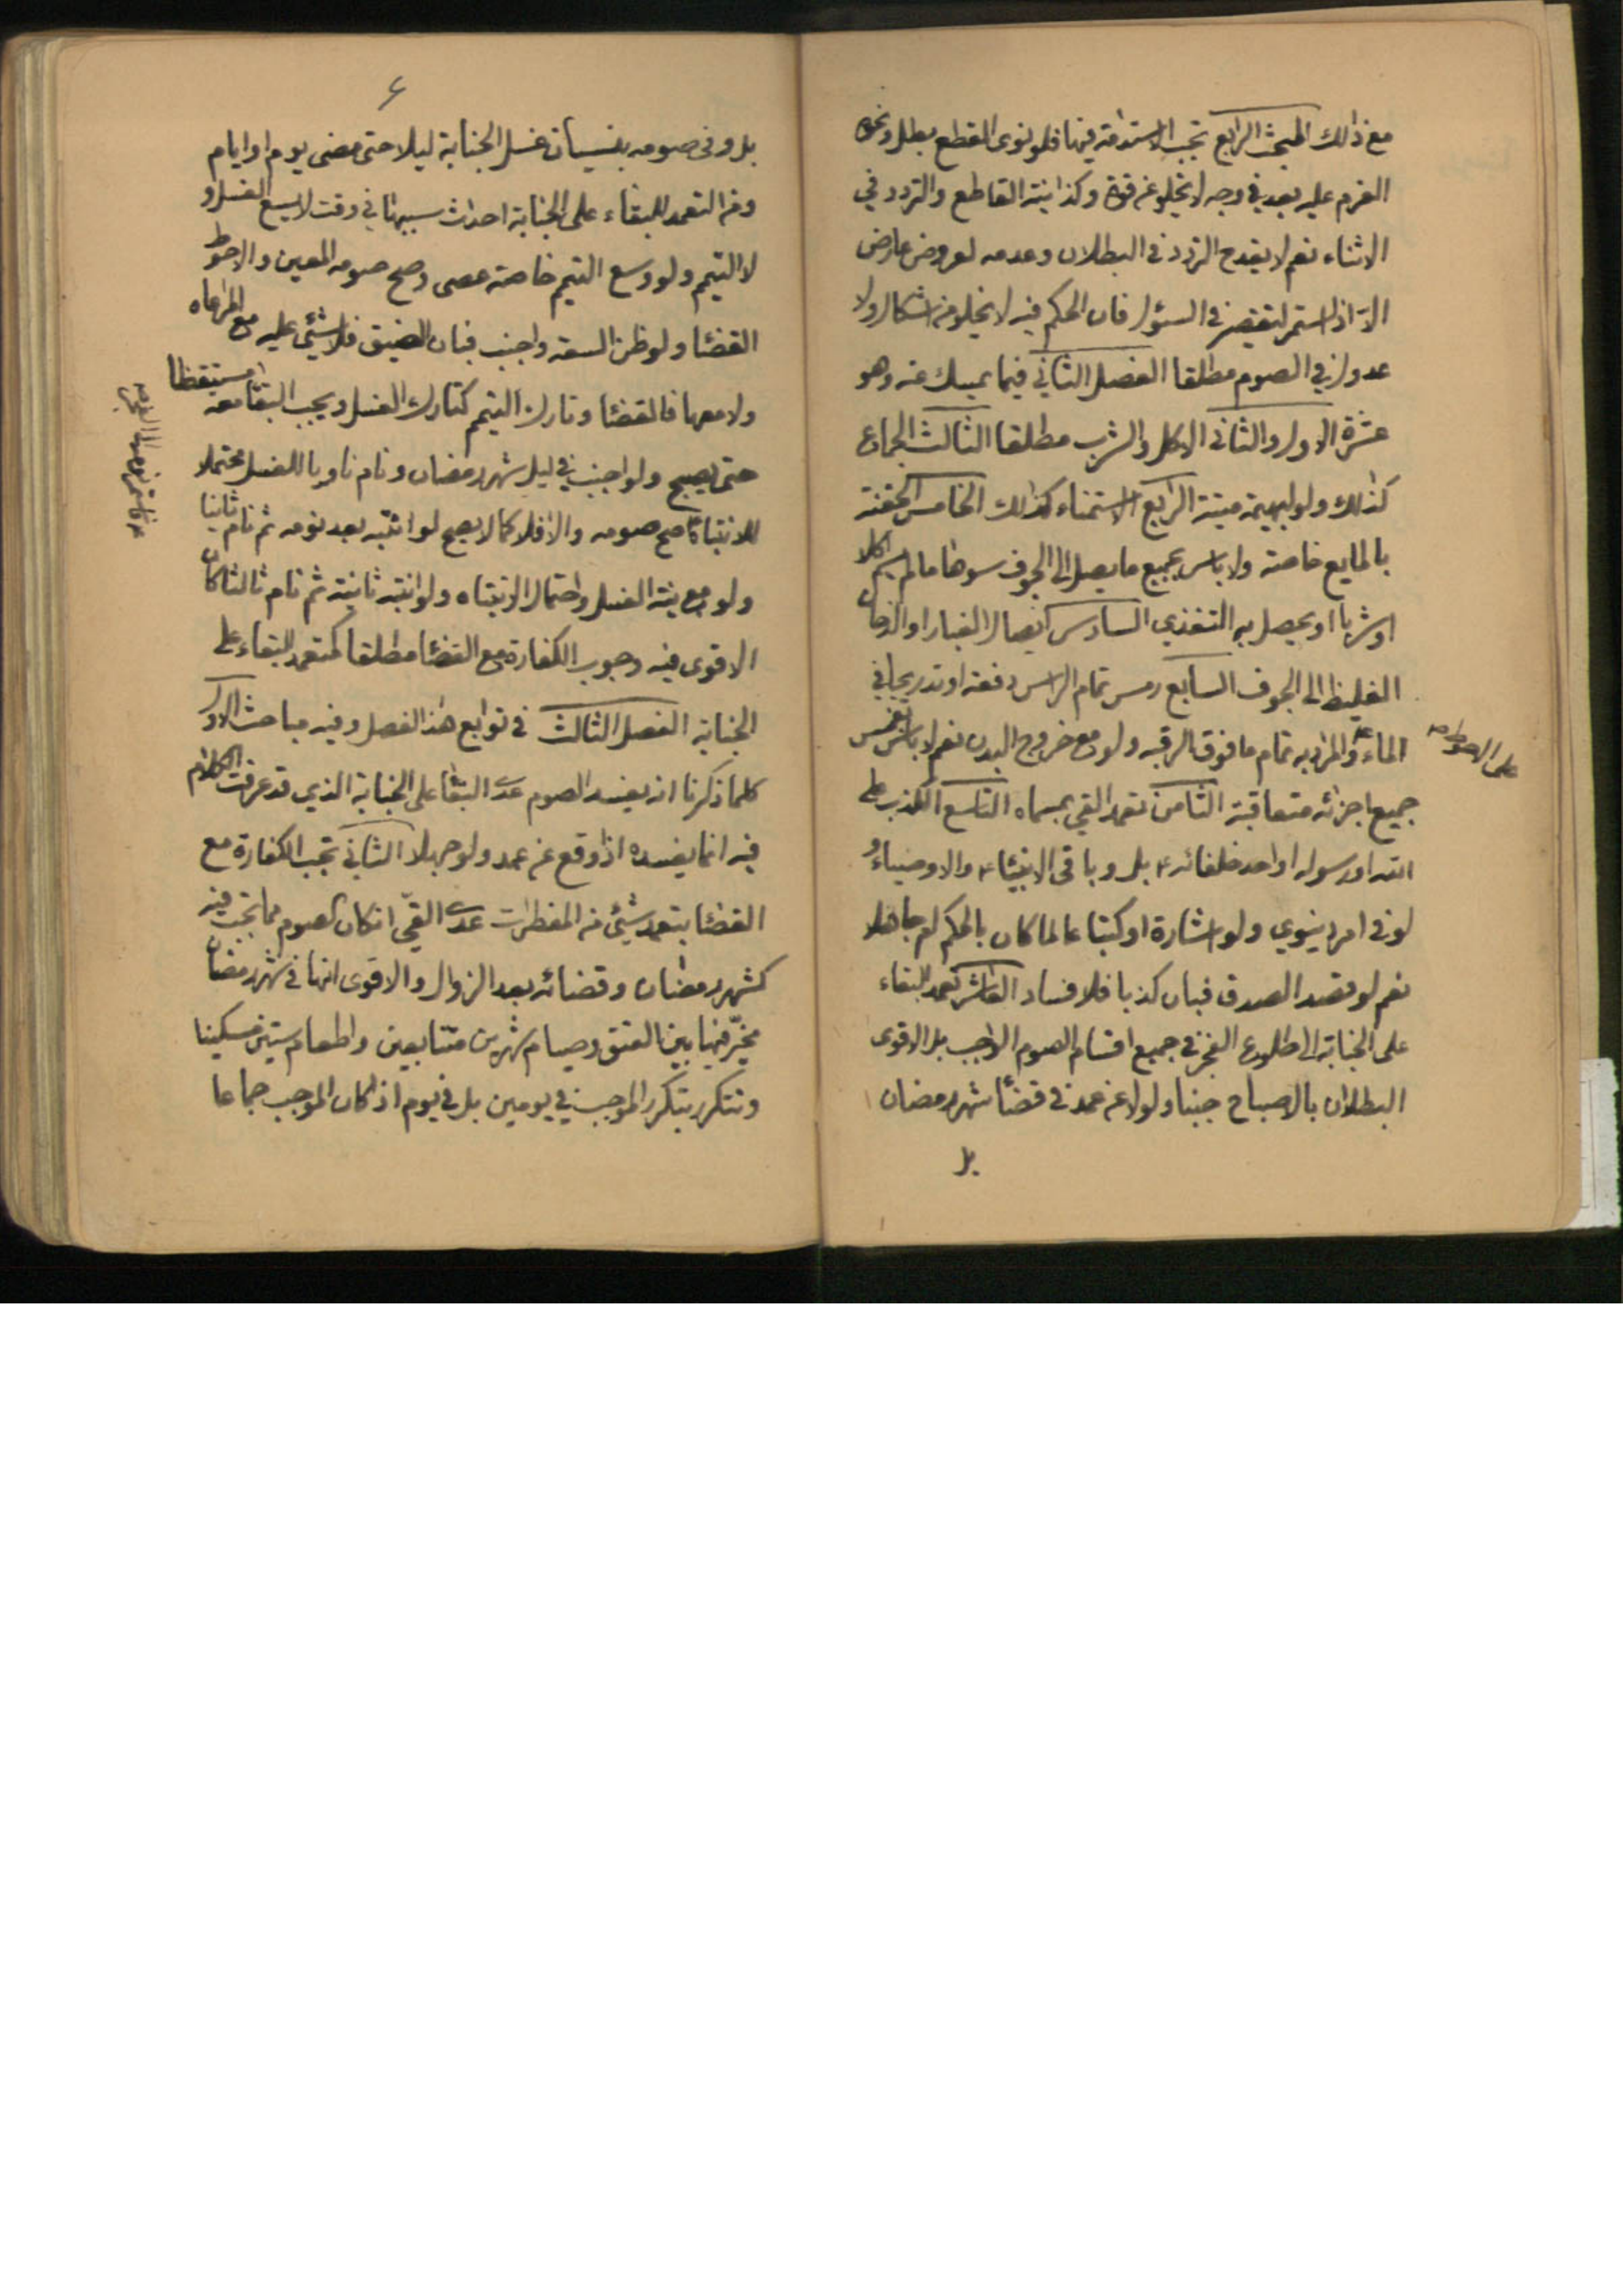 مع ذالك المبحث الرابع تجب الاستدامة فيها فلو نوى القطع بطل ونحوه
العزم عليه بعد في وجه لا يخلو عن قوة وكذا نية القاطع والتردد في
الاثناء نعم لا يقدح التردد في البطلان وعدمه لعروض عارض
الا اذا استمر لتقصير في السؤل فان الحكم فيه لا يخلو من اشكال ولا
عدول في الصوم مطلقا الفصل الثاني فيما يمسك عنه وهو
عشرة الاول والثاني الاكل والشرب مطلقا الثالث الجماع
كذلك ولو لبهيمة ميتة الرابع الاستمناء كذالك الخامس الحقنة
بالمايع خاصة ولا باس بجميع ما يصل الى الجوف سوها ما لم يسم اكلا
او شربا او يحصل به التغذي السادس ايصال الغبار او الدخان
الغليظ الى الجوف السابع رمس تمام الراس دفعة او تدريجا في
الماء والمراد به تمام ما فوق الرقبه ولو مع خروج البدن نعم لا باس بغمس
على الاحوط
جميع اجزائه متعاقبة الثامن تعمد القي بمسماه التاسع الكذب على
الله او رسوله او احد خلفائه ع بل وباقي الانبياء ع والاوصياء و
لو في امر دينوي ولو اشارة او كتبا عالما كان بالحكم ام جاهلا
نعم لو قصد الصدق فبان كذبا فلا فساد العاشر تعمد البقاء
على الجنابة الى طلوع الفجر في جميع اقسام الصوم الواجب بل الاقوى
البطلان بالاصباح جنبا ولو لا عن عمد في قضأ شهر رمضان
بل
٤
بل وفى صومه بنسيان غسل الجنابة ليلا حتى مضى يوم او ايام
ومن التعمد للبقاء على الجنابة احداث سببها في وقت لا يسع الغسل و
لا التيمم ولو وسع التيمم خاصة عصى وصح صومه المعين والاحوط
القضأ ولو ظن السعة واجنب فبان الضيق فلا شئ عليه مع المراعاه
ولا معها فالقضأ وتارك التيمم كتارك الغسل ويجب البقأ معه مستيقظا
حتى يصبح ولو اجنب في ليل شهر رمضان ونام ناويا للغسل محتملا
للانتباه صح صومه والا فلا كما لا يصح لو انتبه بعد نومه ثم نام ثانيا
ولو مع نية الغسل واحتمال الانتباه ولو انتبه ثانية ثم نام ثالثا كان
الاقوى فيه وجوب الكفارة مع القضأ مطلقا كمتعمد البقاء على
الجنابة الفصل الثالث في توابع هذا الفصل وفيه مباحث الاول
كلما ذكرنا انه يفسد الصوم عدى البقأ على الجنابة الذي قد عرفت الكلام
فيه انما يفسده اذا وقع عن عمد ولو جهلا الثاني تجب الكفارة مع
القضأ بتعمد شئ من المفطرات عدى القئ ان كان الصوم مما تجب فيه
كشهر رمضان وقضائه بعد الزوال والاقوى انها في شهر رمضان
مخير فيها بين العتق وصيام شهرين متتابعين واطعام ستين مسكينا
وتتكرر بتكرر الموجب في يومين بل في يوم اذا كان الموجب جماعا